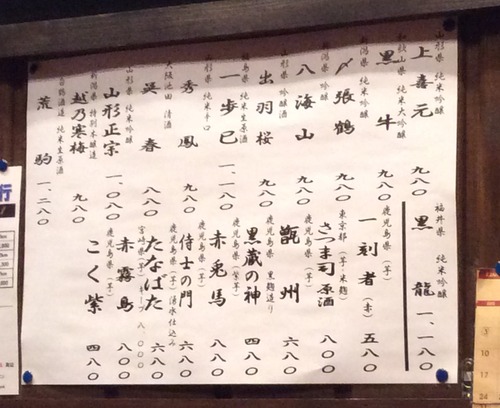 山形県 純米吟醸
上喜元 九八〇
和歌山県 純米大吟醸
黒牛 九八〇
新潟県 純米吟醸
〆張鶴 九八〇
新潟県 吟醸
八海山 九八〇
山形県 吟醸酒
出羽桜 九八〇
福島県 純米生原酒
一歩己 一、一八〇
山形県 純米辛口
秀鳳 九八〇
大阪池田 清酒
呉春 八八〇
山形県 純米吟醸
山形正宗 一、〇八〇
新潟県 特別本醸造
越乃寒梅 九八〇
純米生原酒
荒駒 一、二八〇
福井県 純米吟醸
黒龍 一、一八〇
鹿児島県(芋)
一刻者(赤) 五八〇
東京都(芋・米麹)
さつま司原酒 八〇〇
鹿児島県(芋)
甑州 六八〇
鹿児島県 黒麹造り
黒蔵の神 四八〇
鹿児島県(紫芋)
赤兎馬 八八〇
鹿児島県(芋)
侍士の門 六八〇
鹿児島県(芋)湧水仕込み
たなばた 六八〇
宮崎県(芋)
赤霧島 八〇〇
鹿児島県(芋)
こく紫 四八〇
行
3
10
17
24